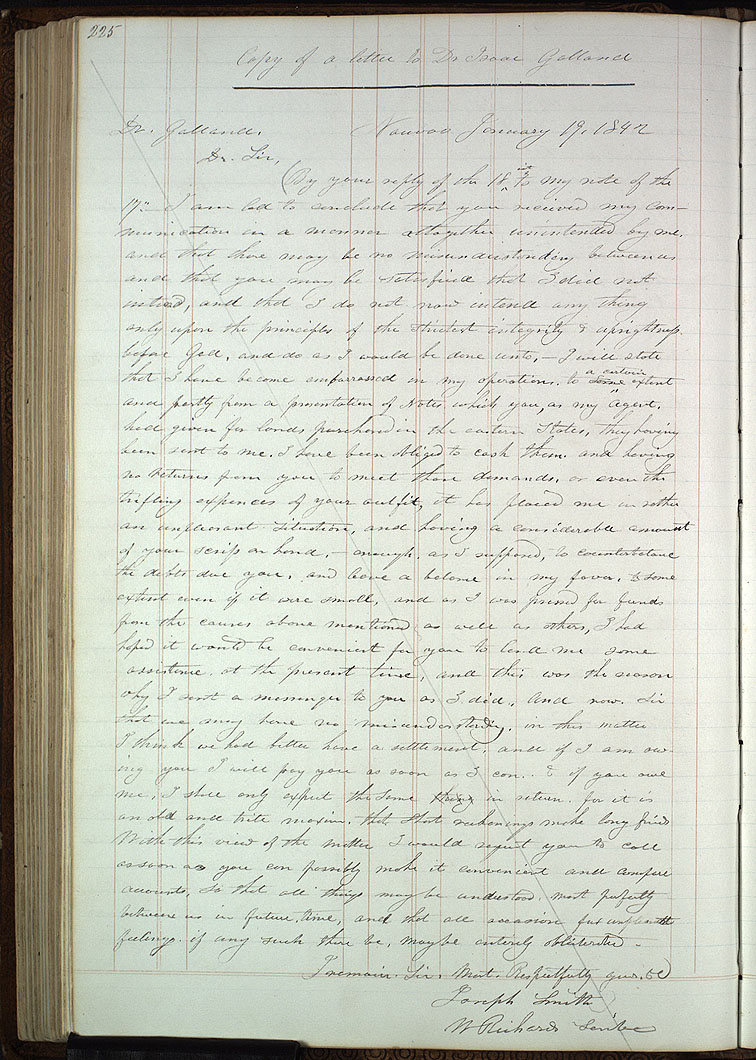 225
Copy of a letter to Dr Isaac Galland
Dr. Galland. Nauvoo January 19, 1842
Dr. Sir,
(By your reply of the 18th to my note of the
17th I am led to conclude that you recieved my com-
munication in a manner altogether unintended by me.
and that there may be no misunderstanding between us
and that you may be satisfied that I did not
intend, and that I do not now intend any thing
only upon the principles of the strictest integrity & uprightness.
before God, and do as I would be done unto,— I will state
that I have become embarrassed in my operations. to a certain some extent
and partly from a presentation of Notes which you, as my agent,
had given for lands purchased in the eastern States, they having
been sent to me. I have been obliged to cash them. and having
no returns from you to meet those demands, or even the
trifling expences of your outfit, it has placed me in rather
an unpleasant situation, and having a considerable amount
of your scrip on hand,— enough, as I supposed, to counterbalance
the debts due you, and leave a balance in my favor, to some
extent even if it were small, and as I was pressed for funds
from the causes above mentioned as well as others, I had
hoped it would be convenient for you to lend me some
assistance, at the present time, and this was the reason
why I sent a messenger to you as I did, And now. Sir
that we may have no misunderstanding, in this matter
I think we had better have a settlement, and if I am ow-
ing you I will pay you as soon as I can.. & if you owe
me, I shall only expect the same thing in return. for it is
an old and trite maxim. that, short reckonings make long friends
With this view of the matter I would request you to call
as soon as you can possibly make it convenient and compare
accounts, so that all things may be understood most perfectly
between us in future, time, and that all occasion for unpleasant
feelings. if any such there be, may be entirely obliterated—
I remain. Sir. Most. Respectfully yours. &c
Joseph Smith
W Richards Scribe